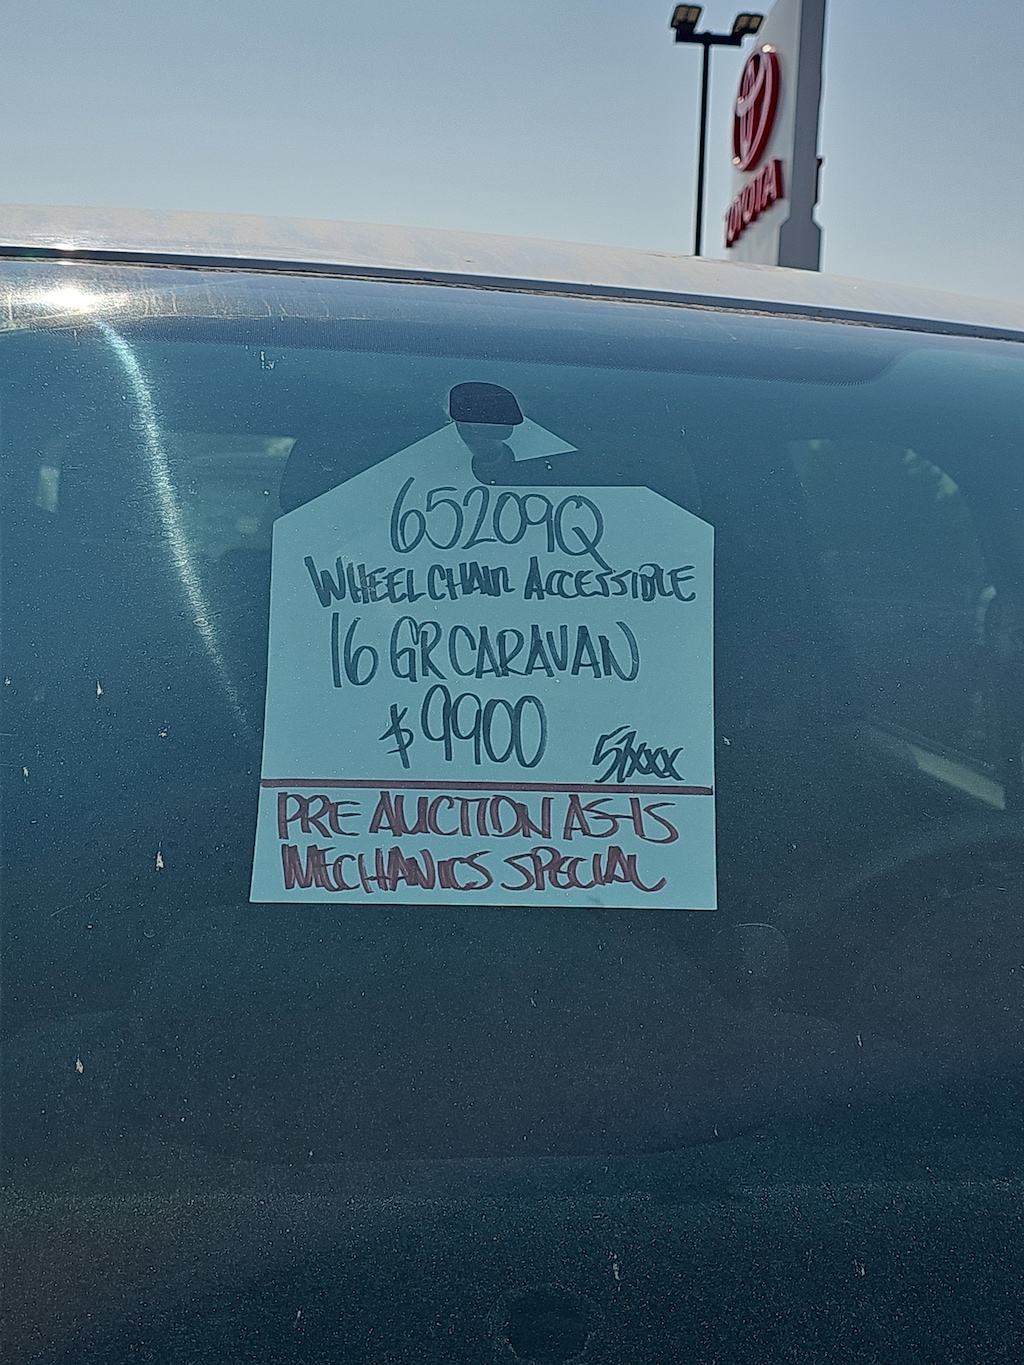 TOYOTA
65209Q
WHEELCHAIR ACCESSIBLE
16 GR CARAVAN
$9900
57xxx
PRE AUCTION AS-IS
MECHANICS SPECIAL